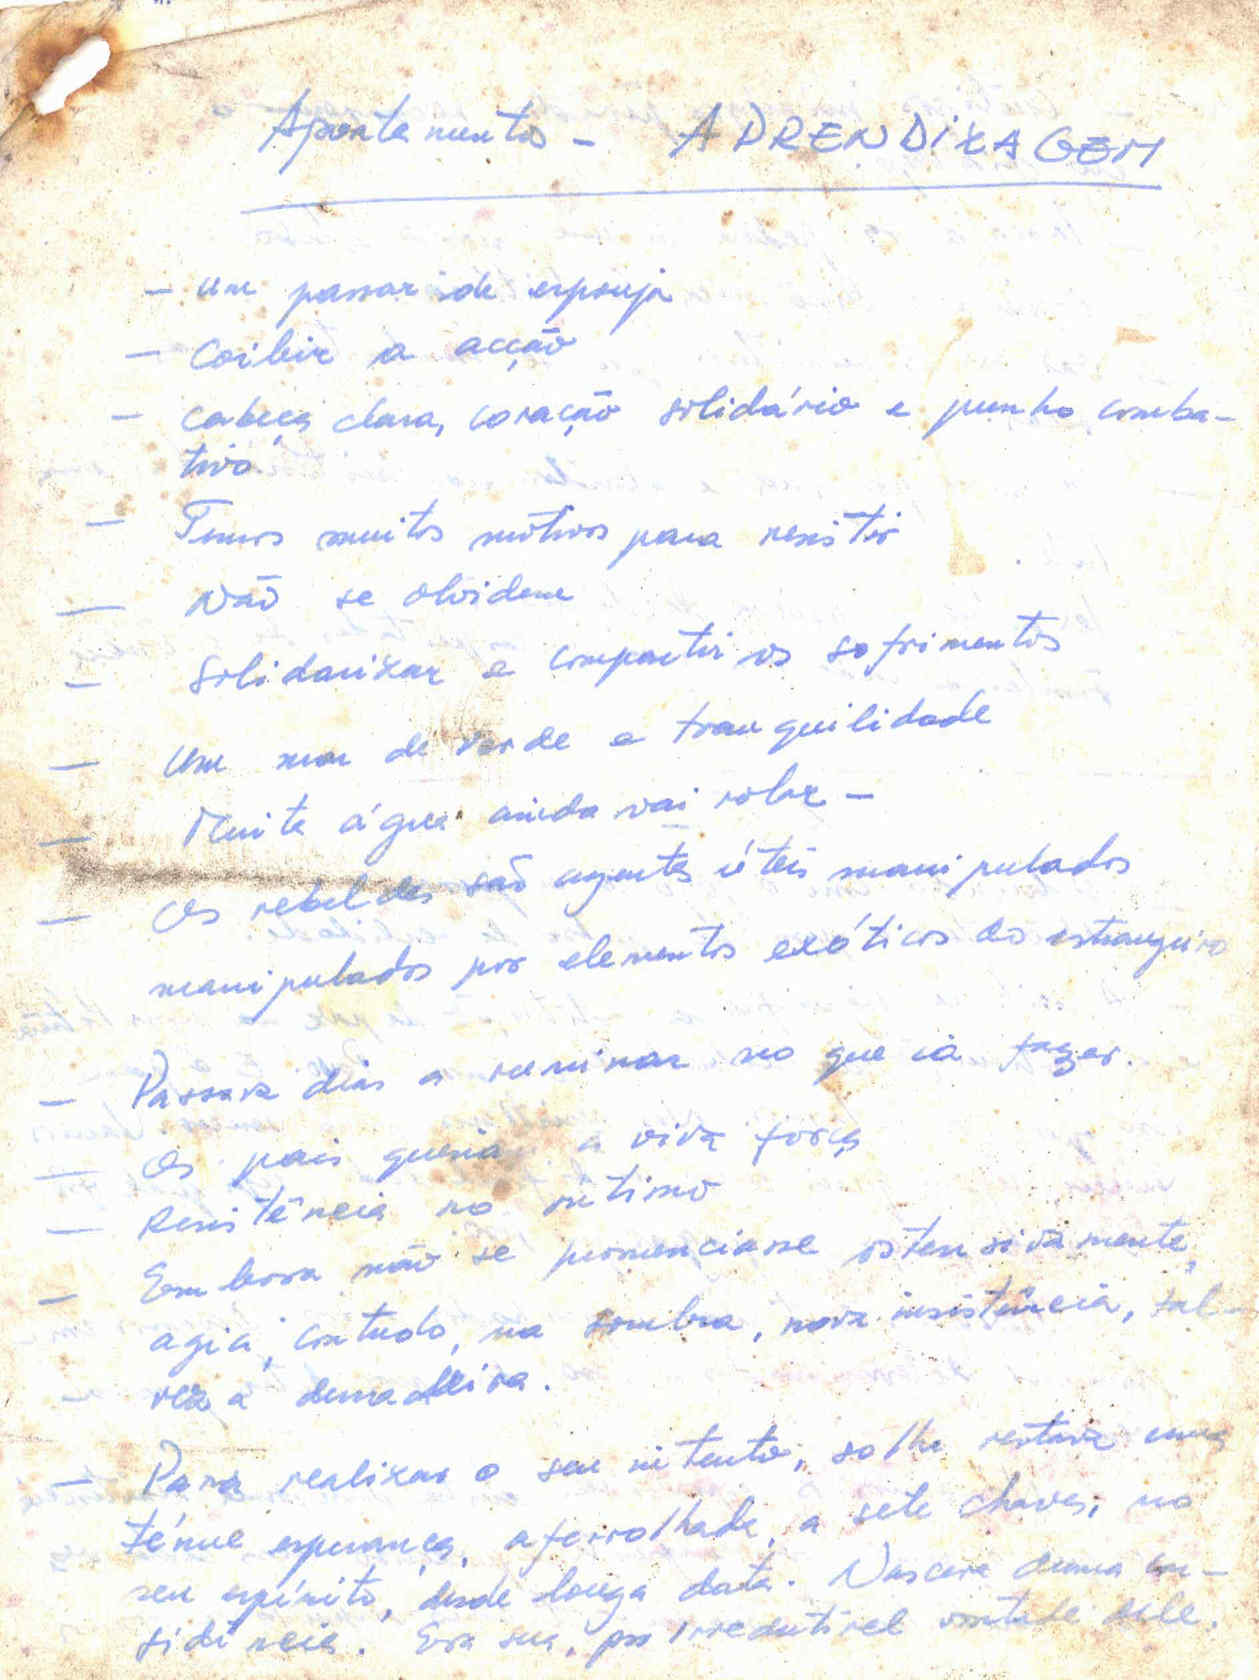 Apontamentos - APRENDIZAGEM
- Um passar de esponja
- Coibir a acção
- Cabeça clara, coração solidário e punho comba-
tivo
- Temos muitos motivos para resistir
- Não se olvidem
- Solidarizar e compartir os sofrimentos
- Um mar de verde e tranquilidade
- Muita água ainda vai rolar -
- Os rebeldes são agentes úteis manipulados
manipulados por elementos exóticos do estrangeiro
- Passava dias a ruminar no que ia fazer.
- Os pais queria a viva força
- Resistência no íntimo
- Embora não se pronunciasse ostensivamente,
agia, contudo, na sombra, nova insistência, tal-
vez a derradeira.
- Para realizar o seu intento, só lhe restava uma
ténue esperança, aferrolhada, a sete chaves, no
seu espírito, desde longa data. Nascera duma
Era sua, por irredutível vontade dele.